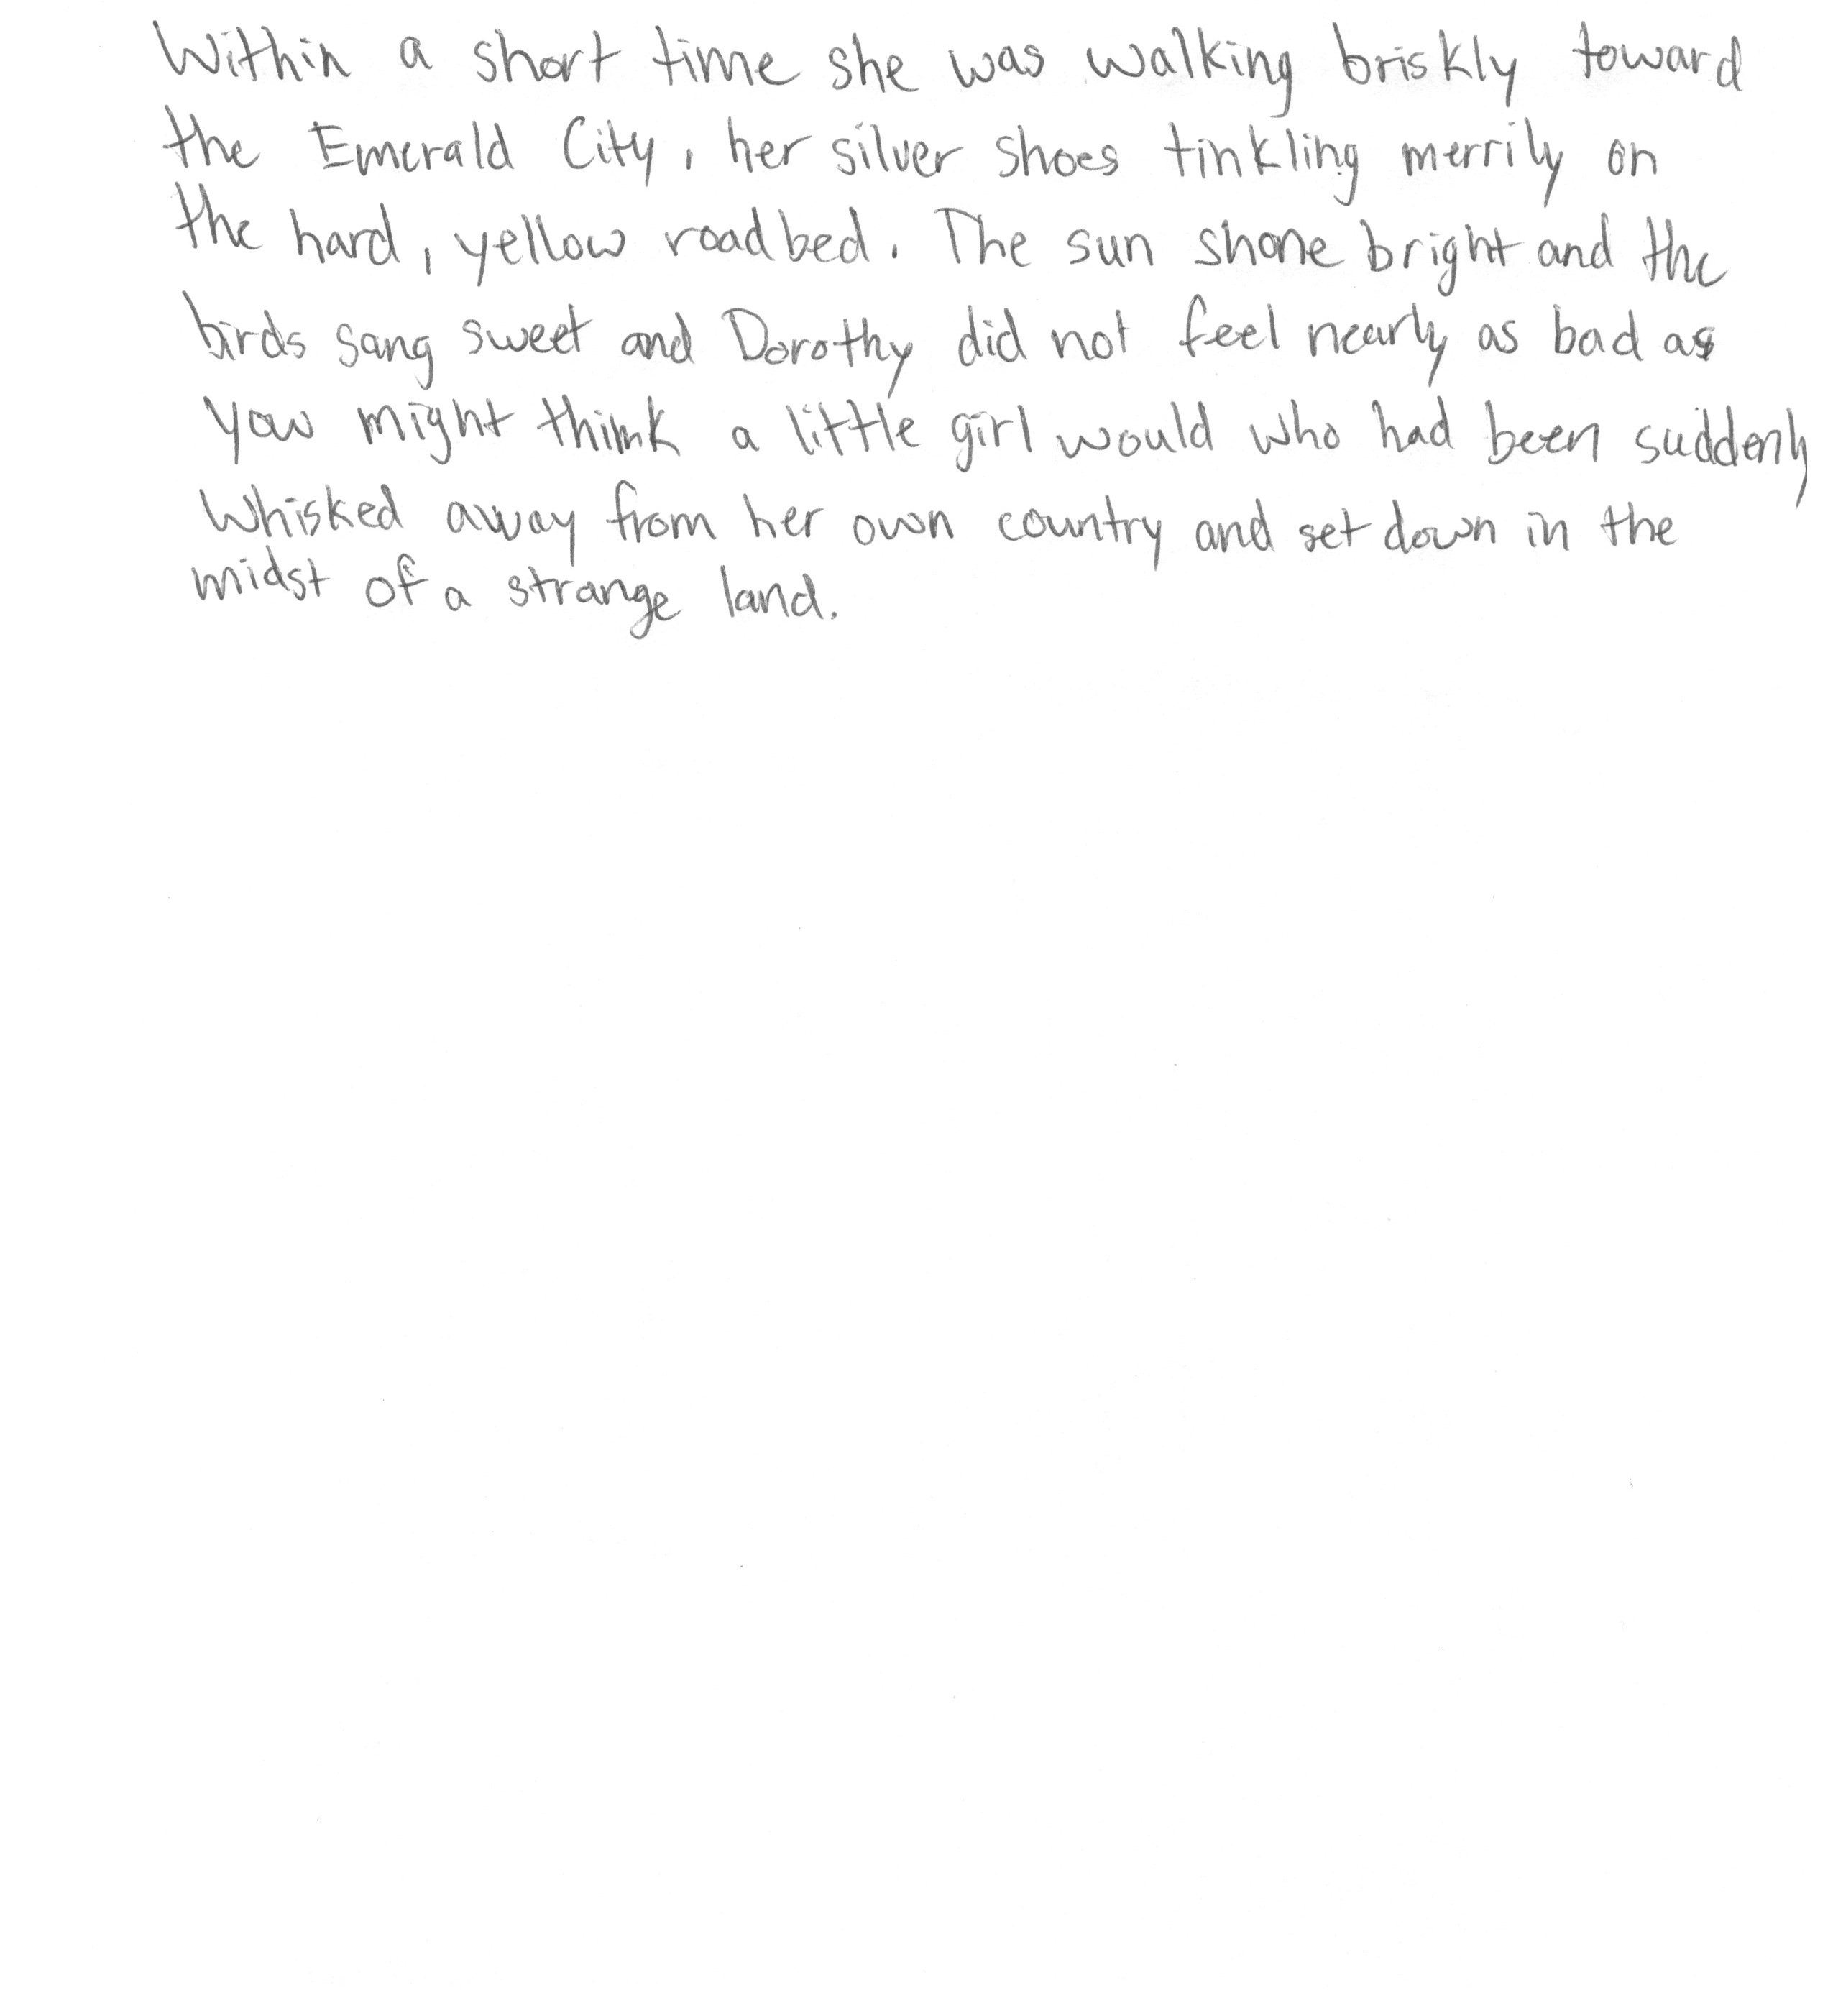 Within a short time she was walking briskly toward
the Emerald City, her silver shoes tinkling merrily on
the hard, yellow roadbed. The sun shone bright and the
birds sang sweet and Dorothy did not feel nearly as bad as
you might think a little girl would who had been suddenly
whisked away from her own country and set down in the
midst of a strange land.